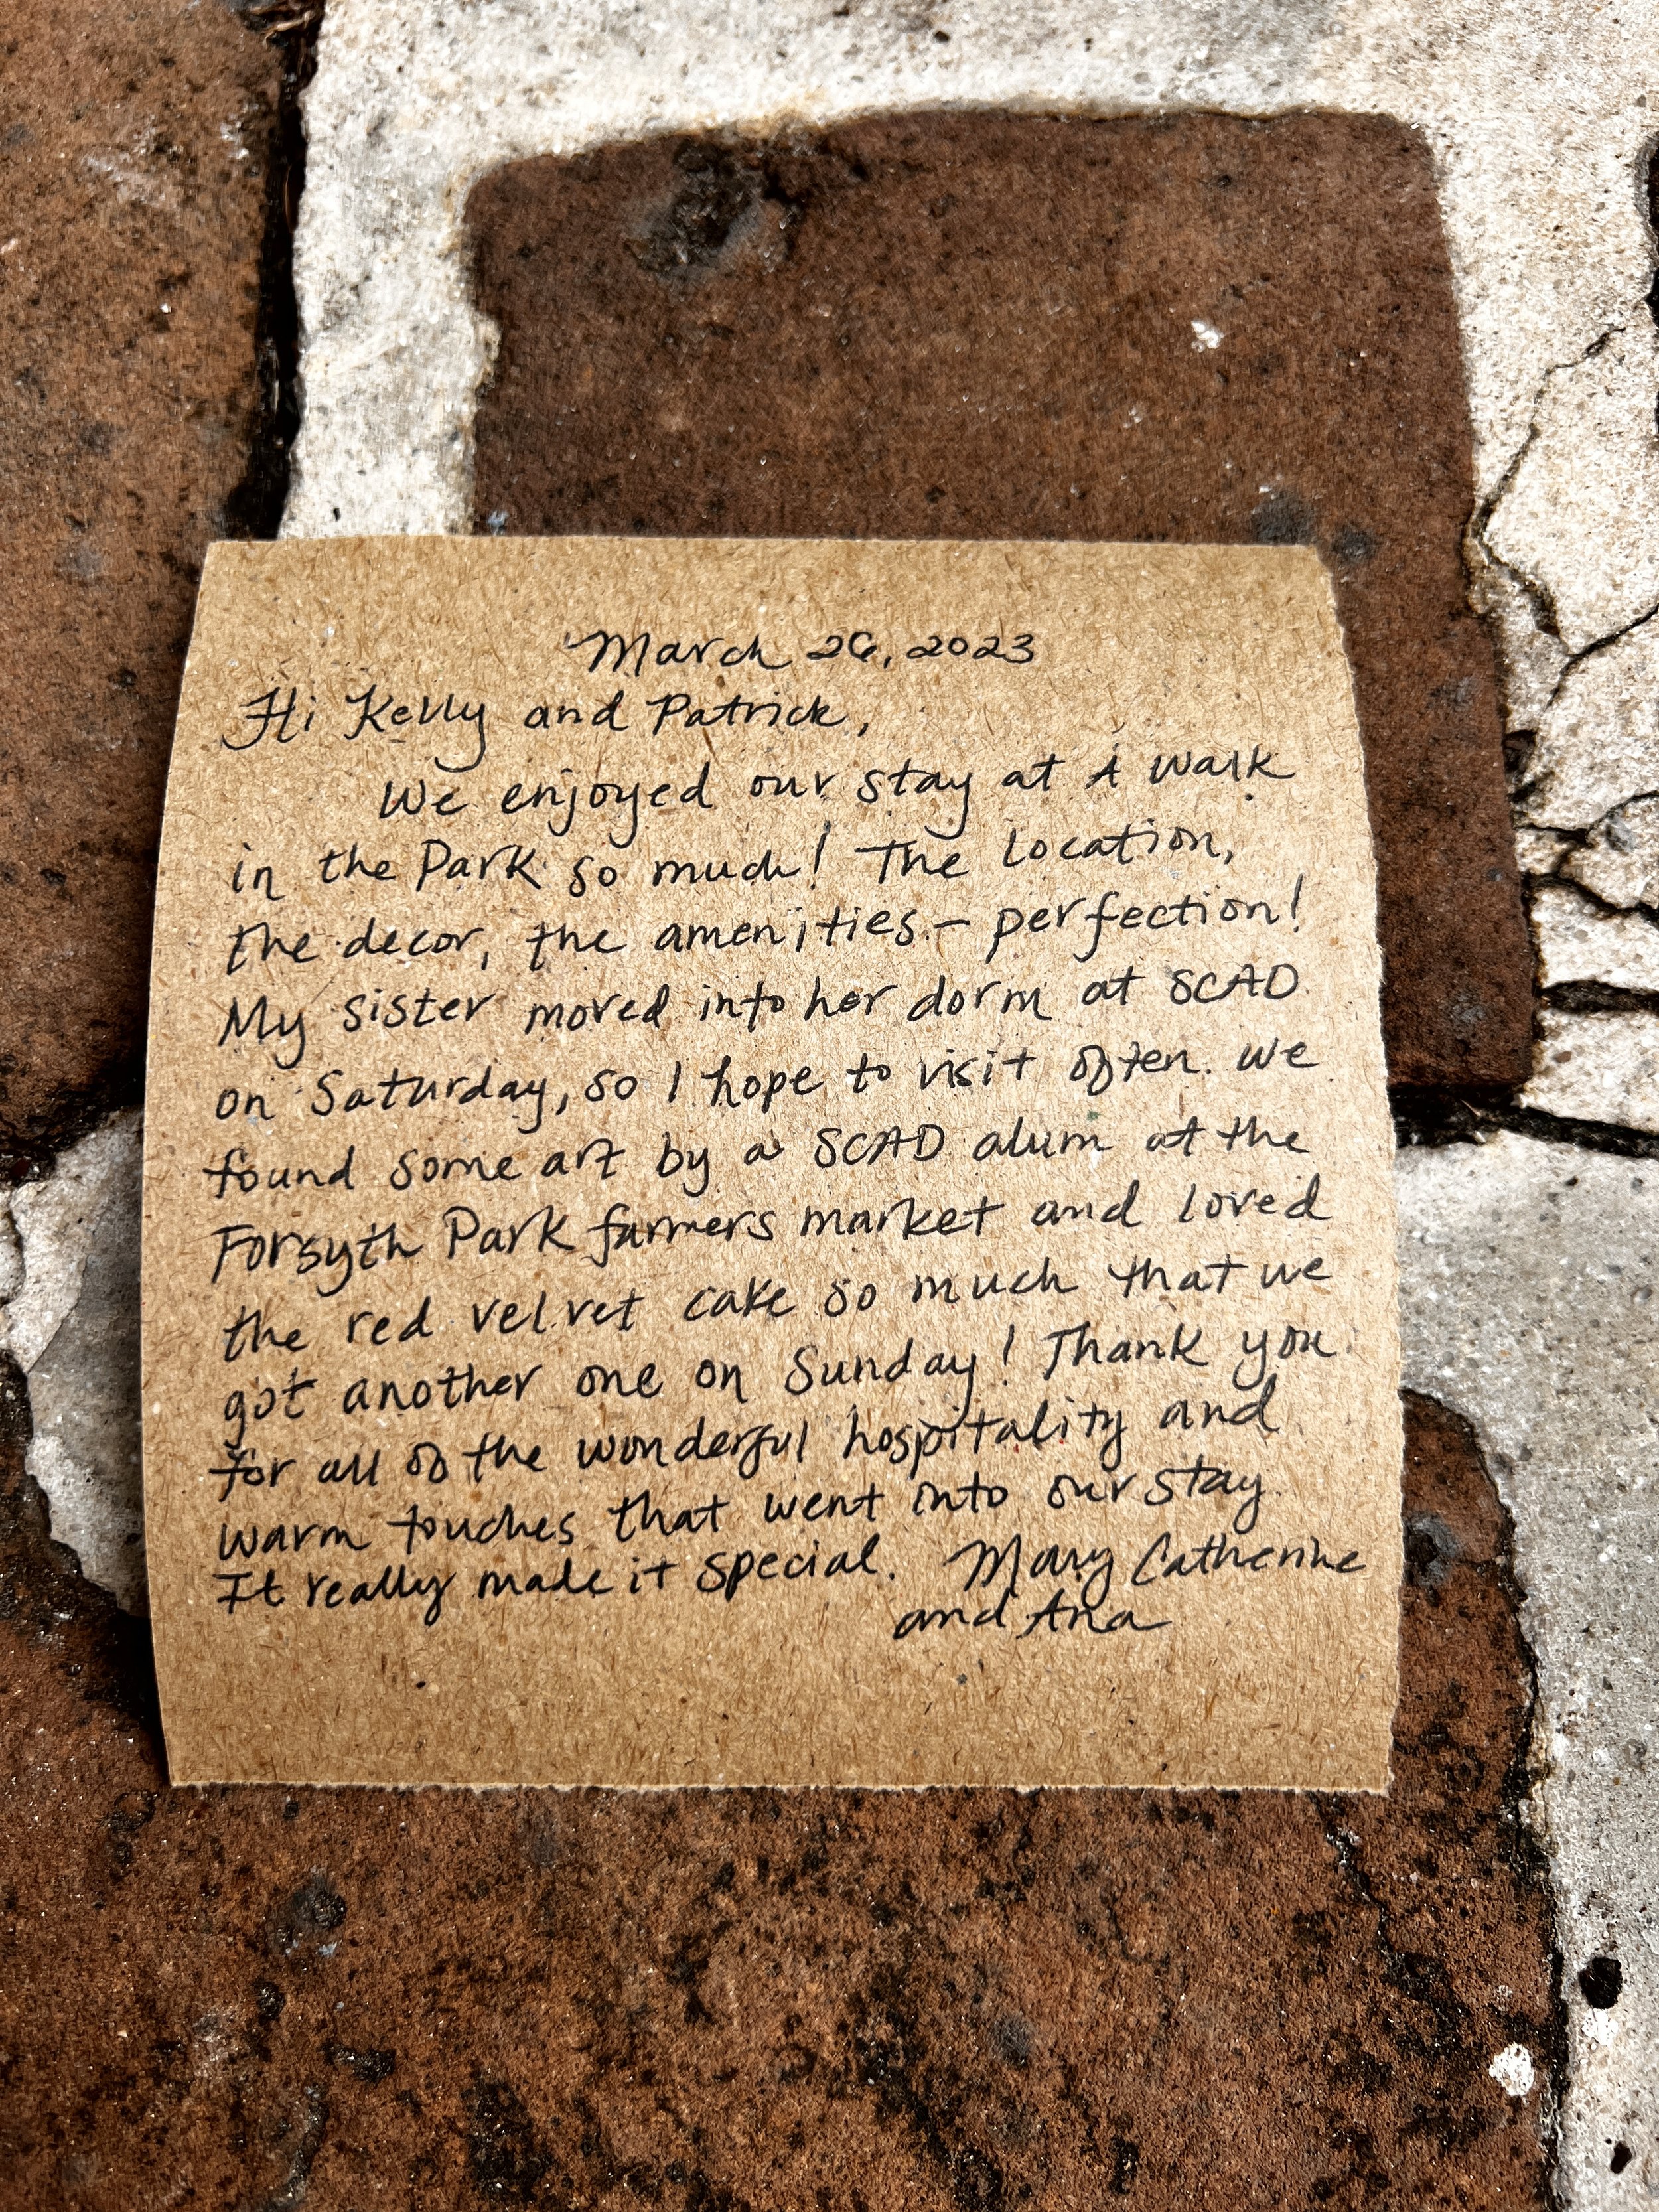 March 26, 2023
Hi Kelly and Patrick,
We enjoyed our stay at A Walk
in the Park so much! The location,
the decor, the amenities - perfection!
My sister moved into her dorm at SCAD
on Saturday, so I hope to visit often. We
found some art by a SCAD alum at the
Forsyth Park farmers market and loved
the red velvet cake so much that we
got another one on Sunday! Thank you
for all of the wonderful hospitality and
warm touches that went into our stay.
It really made it special. Mary Catherine
and Ana